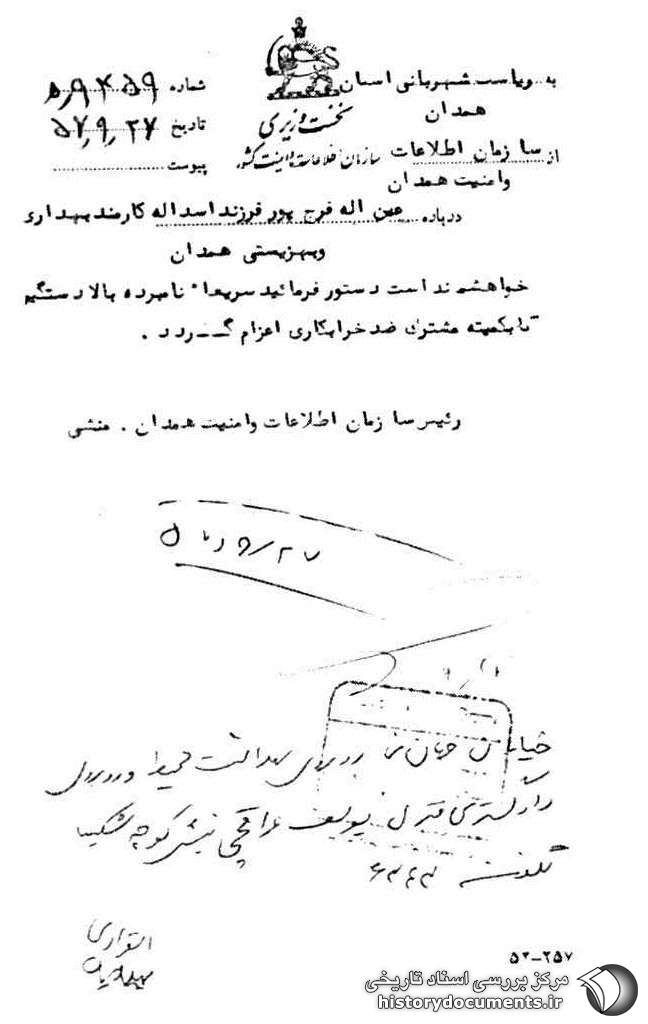 به ریاست شهربانی استان
همدان
از سازمان اطلاعات
وامنیت همدان
نخست وزیری
سازمان اطلاعات و امنیت کشور
شماره ۵٫۹۴۵۹
تاریخ ۵۷٫۹٫۲۷
پیوست
درباره عین اله فرج پور فرزند اسداله کارمند بهداری
وبهزیستی همدان
خواهشمند است دستور فرمائید سریعا" نامبرده بالا دستگیر
تا بکمیته مشترک ضد خرابکاری اعزام گــردد .
رئیس سازمان اطلاعات وامنیت همدان . منشی
خیابان جهان نما روبروی بهداشت محیط و روبروی
دادگستری منزل یوسف عراقچی نبش کوچه شکیبا
تلفن
۵۲-۲۵۷
مرکز بررسی اسناد تاریخی
historydocuments.ir